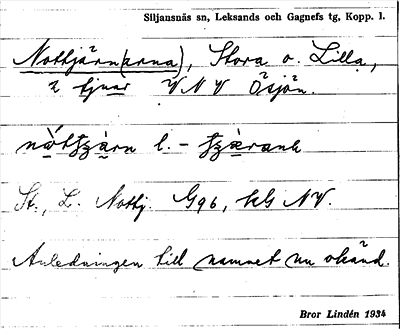 Siljansnäs sn, Leksands och Gagnefs tg, Kopp. l.
Nottjärn(arna), Stora o. Lilla,
2 tjnar VNV Ösjön.
l. -
St., L. Nottj. G96, kG NV.
Anledningen till namnet nu okänd.
Bror Lindén 1934